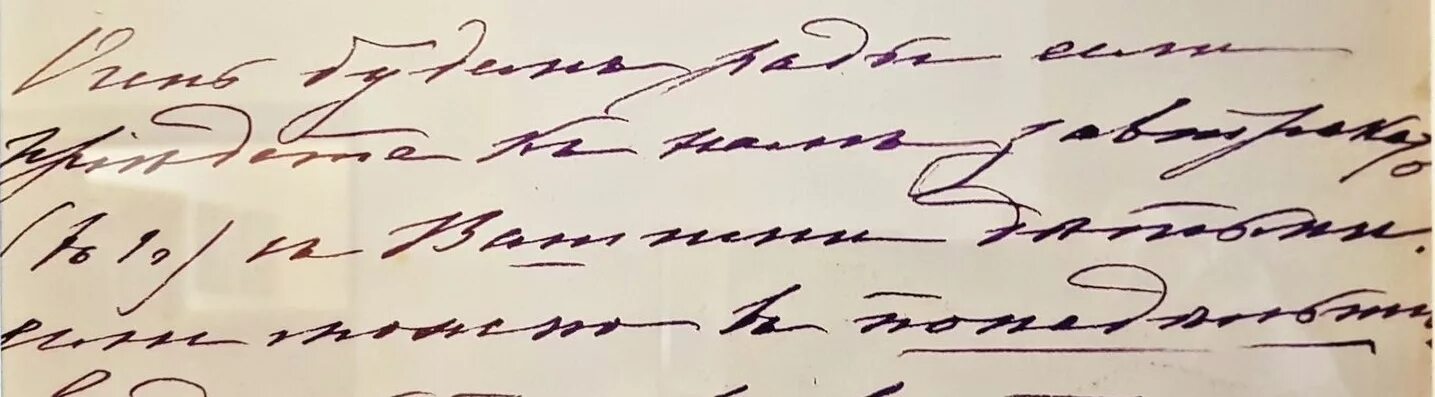 Очень будемъ рады если
прійдете къ намъ завтракать
съ Вашими дѣтьми.
если можно въ понедѣльник